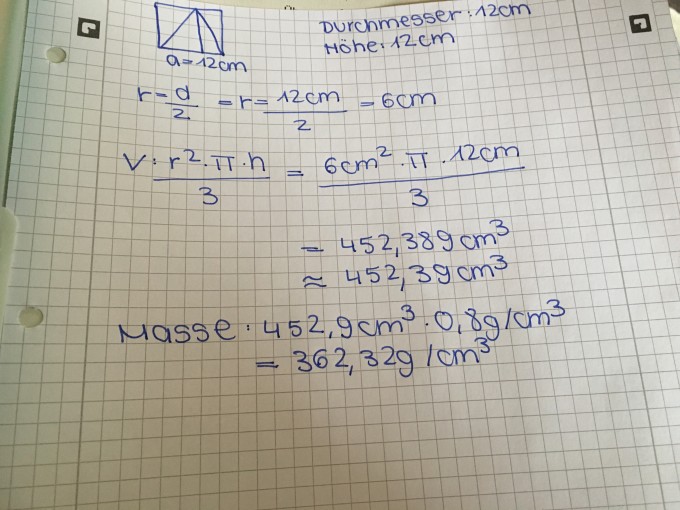 Durchmesser: 12cm
Höhe: 12cm
a = 12cm
r = d/2 = r = 12cm/2 = 6cm
V: r² · π · h / 3 = 6cm² · π · 12cm / 3
= 452,389cm³
≈ 452,39cm³
Masse: 452,9cm³ · 0,8g/cm³
= 362,32g/cm³